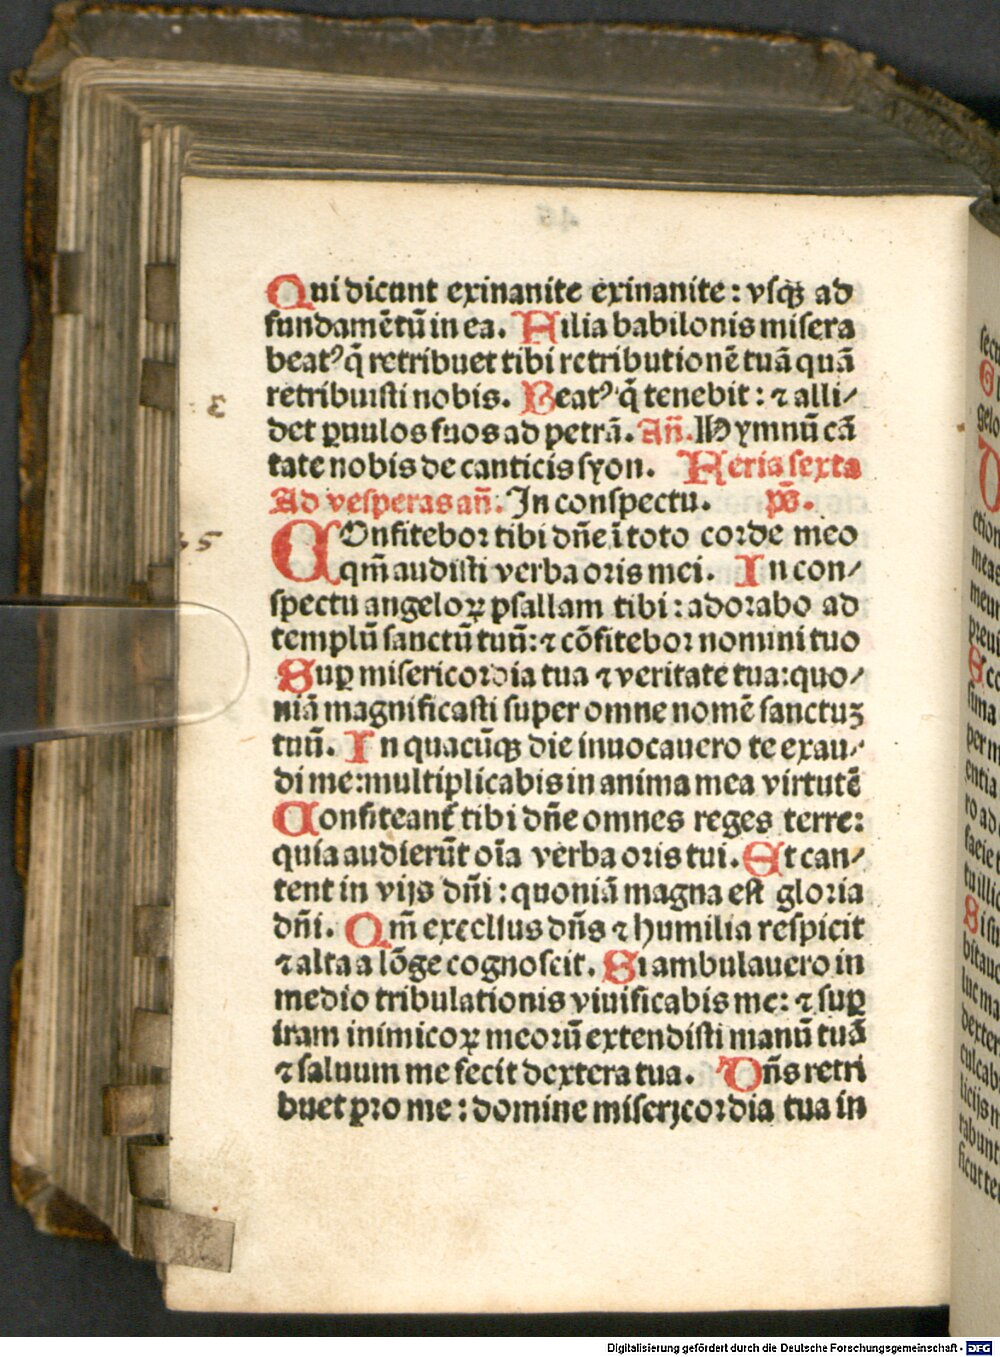 Qui dicunt exinanite exinanite: vsqꝫ ad
fundamētū in ea. Filia babilonis misera
beatꝰ q̄ retribuet tibi retributionē tuā quā
retribuisti nobis. Beatꝰ q̄ tenebit: ⁊ alli/
det ꝑuulos suos ad petrā. Añ. Hymnū cā
tate nobis de canticis syon. Feria sexta
Ad vesperas añ. In conspectu. ps̄.
COnfitebor tibi dñe ī toto corde meo
qm̄ audisti verba oris mei. In con/
spectu angeloꝝ psallam tibi: adorabo ad
templū sanctū tuū: ⁊ cōfitebor nomini tuo
Suꝑ misericordia tua ⁊ veritate tua: quo/
niā magnificasti super omne nomē sanctuꝫ
tuū. In quacūqꝫ die inuocauero te exau/
di me: multiplicabis in anima mea virtutē
Confiteant᷑ tibi dñe omnes reges terre:
quia audierūt oīa verba oris tui. Et can/
tent in vijs dñi: quoniā magna est gloria
dñi. Qm̄ excelsus dñs ⁊ humilia respicit
⁊ alta a lōge cognoscit. Si ambulauero in
medio tribulationis viuificabis me: ⁊ suꝑ
iram inimicoꝝ meorū extendisti manū tuā
⁊ saluum me fecit dextera tua. Dñs retri
buet ꝓ me: domine misericordia tua in
Digitalisierung gefördert durch die Deutsche Forschungsgemeinschaft - DFG